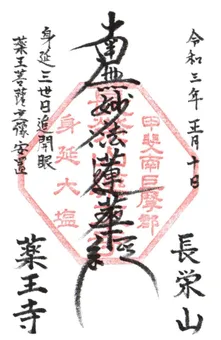 令和三年正月十日
長栄山
甲斐南巨摩郡
南無妙法蓮華経
身延大塩
身延三世日追開眼
薬王菩薩
安置
薬王寺